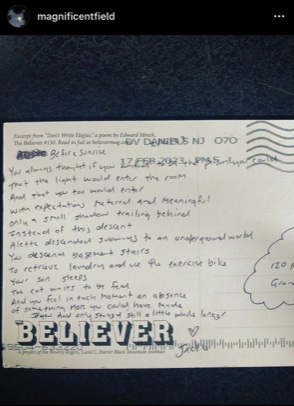 magnificentfield
Excerpt from "Don't Write Elegies," a poem by Edward Hirsch,
The Believer #130. Read in full at believermag.com
DV DANIELS NJ 070
17 FEB 2023 PM 5
Before Sunrise
You always thought if you
that the light would enter the room
And that you too would enter
With expectations Natural and Meaningful
only a small shadow trailing behind
Instead of this descent
Alette descended subways to an underground world
You descend basement stairs
To retrieve laundry and use the exercise bike
Your son sleeps
The cat waits to be fed
And you feel in each moment an absence
of something more you could have made
If you had only stayed still a little while longer
BELIEVER
A project of the Beverly Rogers, Carol C. Harter Black Mountain Institute
120